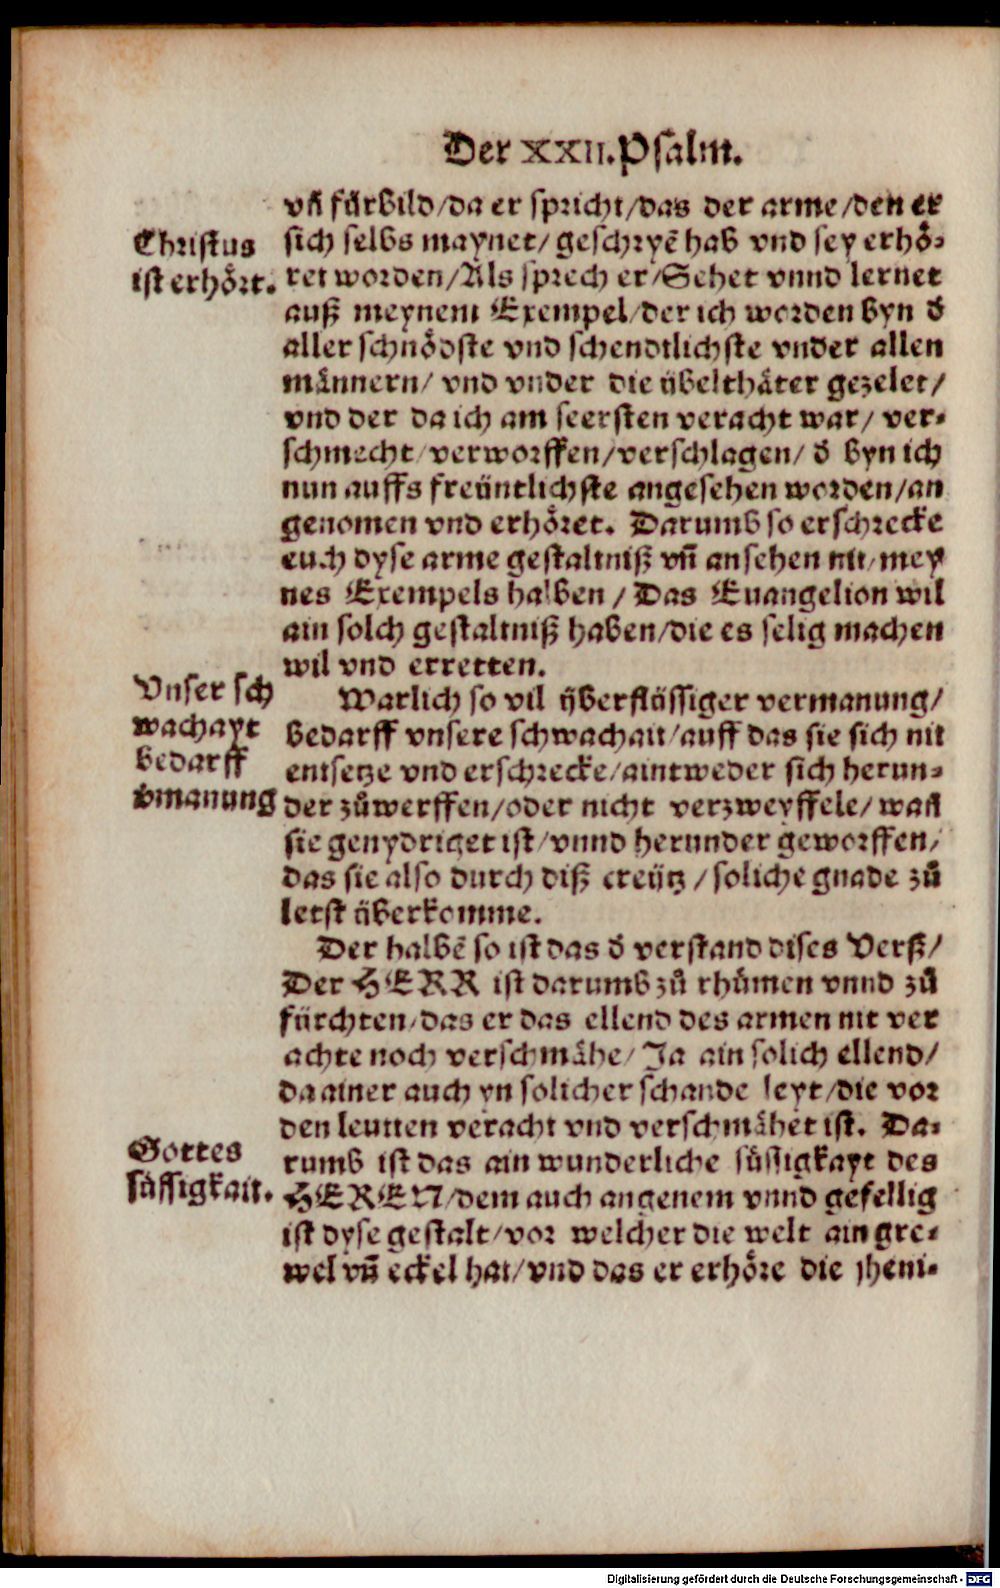 Der XXII. Psalm.
vñ fürbild/da er spricht/das der arme/den er
sich selbs maynet/ geschryẽ hab vnd sey erhö⸗
ret worden/Als sprech er/Sehet vnnd lernet
auß meynem Exempel/der ich worden byn d̕
aller schnödste vnd schendtlichste vnder allen
männern/ vnd vnder die übelthäter gezelet/
vnd der da ich am seersten veracht war/ ver⸗
schmecht/verworffen/verschlagen/ d̕ byn ich
nun auffs freüntlichste angesehen worden/an
genomen vnd erhöret. Darumb so erschrecke
euch dyse arme gestaltniß vñ ansehen nit/mey
nes Exempels halben / Das Euangelion wil
ain solch gestaltniß haben/die es selig machen
wil vnd erretten.
Warlich so vil überflüssiger vermanung/
bedarff vnsere schwachait/auff das sie sich nit
entsetze vnd erschrecke/aintweder sich herun⸗
der zůwerffen/oder nicht verzweyffele/ wañ
sie genydriget ist/vnnd herunder geworffen/
das sie also durch diß creütz /soliche gnade zů
letst überkomme.
Der halbẽ so ist das d̕ verstand dises Verß/
Der HERR ist darumb zů rhümen vnnd zů
fürchten/das er das ellend des armen nit ver
achte noch verschmähe/ Ja ain solich ellend/
da ainer auch yn solicher schande leyt/die vor
den leutten veracht vnd verschmähet ist. Da⸗
rumb ist das ain wunderliche süssigkayt des
HEREN/dem auch angenem vnnd gefellig
ist dyse gestalt/vor welcher die welt ain gre⸗
wel vñ eckel hat/vnd das er erhöre die jheni⸗
Christus
ist erhört.
Vnser sch
wachayt
bedarff
v̕manung
Gottes
süssigkait.
Digitalisierung gefördert durch die Deutsche Forschungsgemeinschaft - DFG